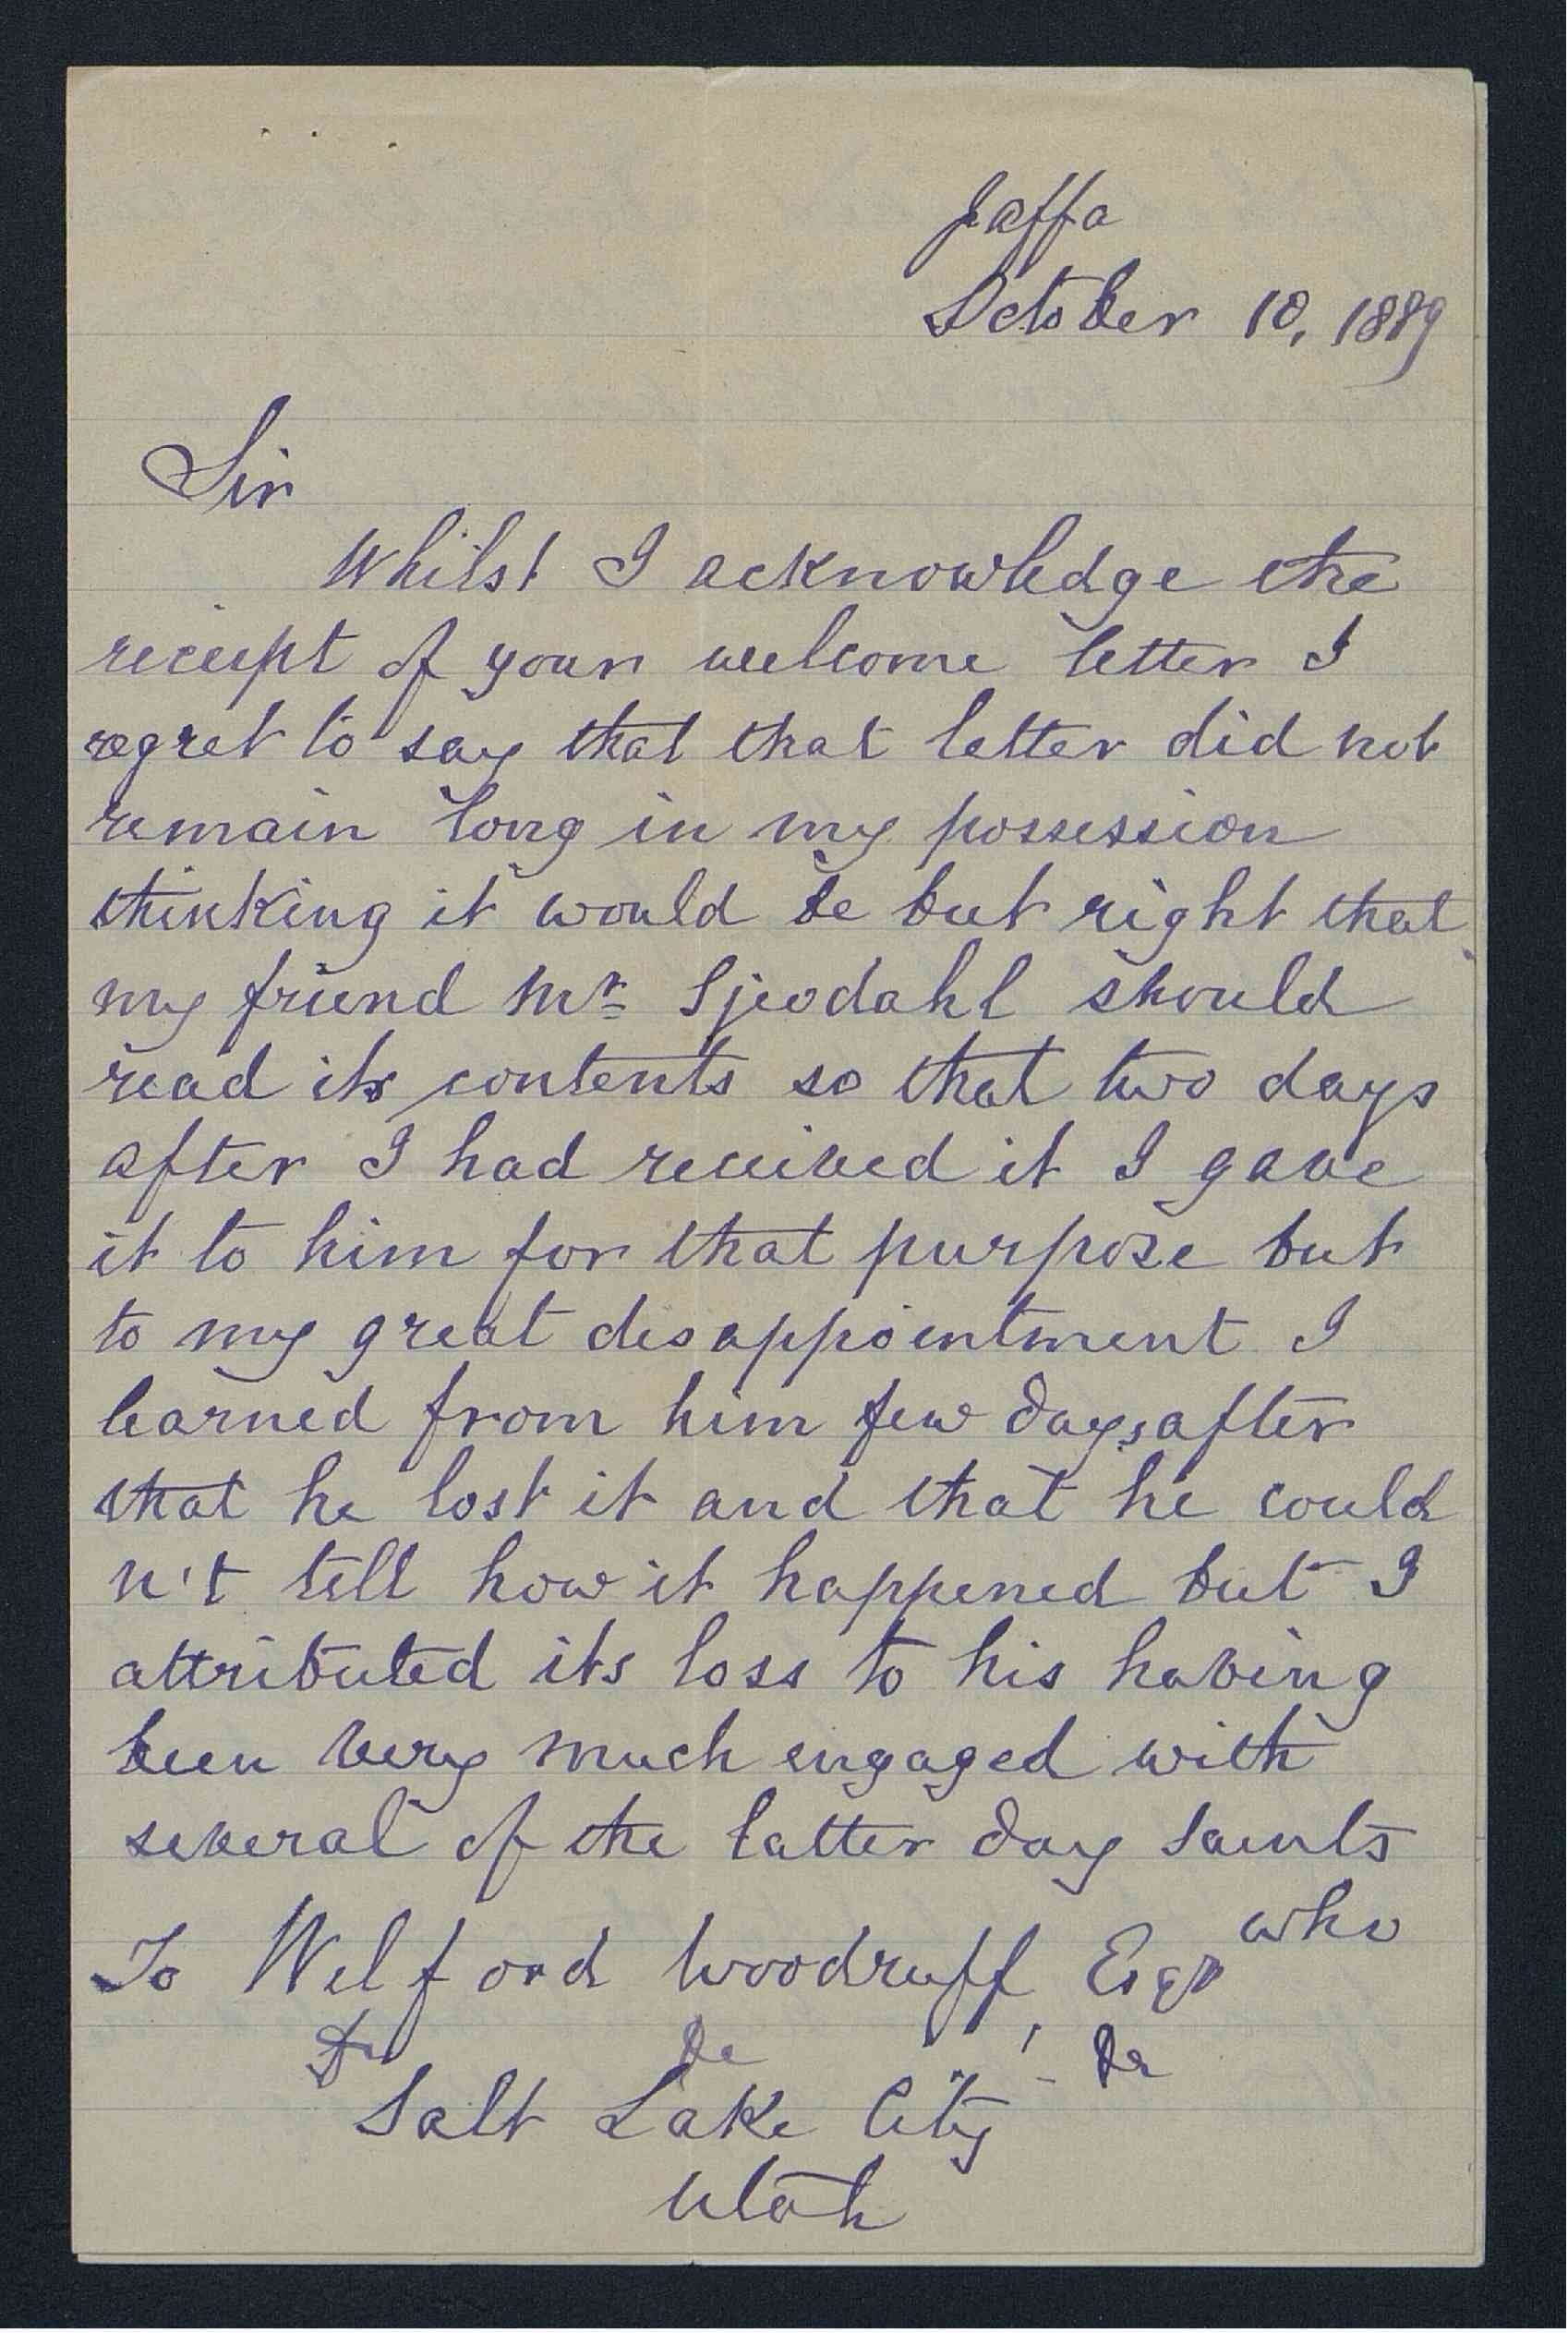 Jaffa
October 10, 1889
Sir
Whilst I acknowledge the
receipt of your welcome letter I
regret to say that that letter did not
remain long in my possession
thinking it would be but right that
my friend Mr Sjeodahl should
read its contents so that two days
after I had received it I gave
it to him for that purpose but
to my great disappointment I
learned from him few days after
that he lost it and that he could
n't tell how it happened but I
attributed its loss to his having
been very much engaged with
several of the latter day Saints
who
To Welford Woodruff, Esqr
&c &c &c
Salt Lake City
Utah